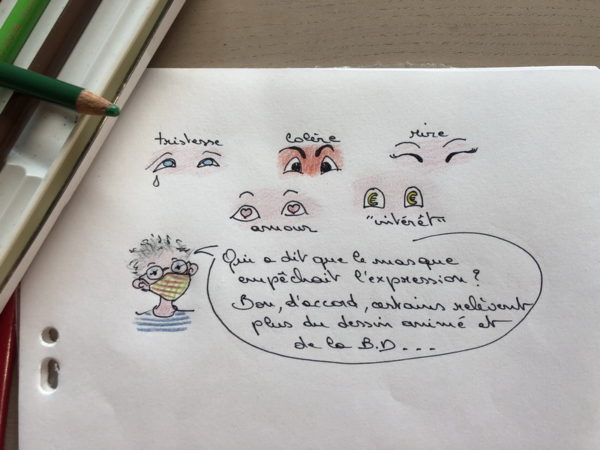 tristesse
colère
rire
amour
"intérêt"
Qui a dit que le masque
empêchait l'expression ?
Bon, d'accord, certains relèvent
plus du dessin animé et
de la B.D...